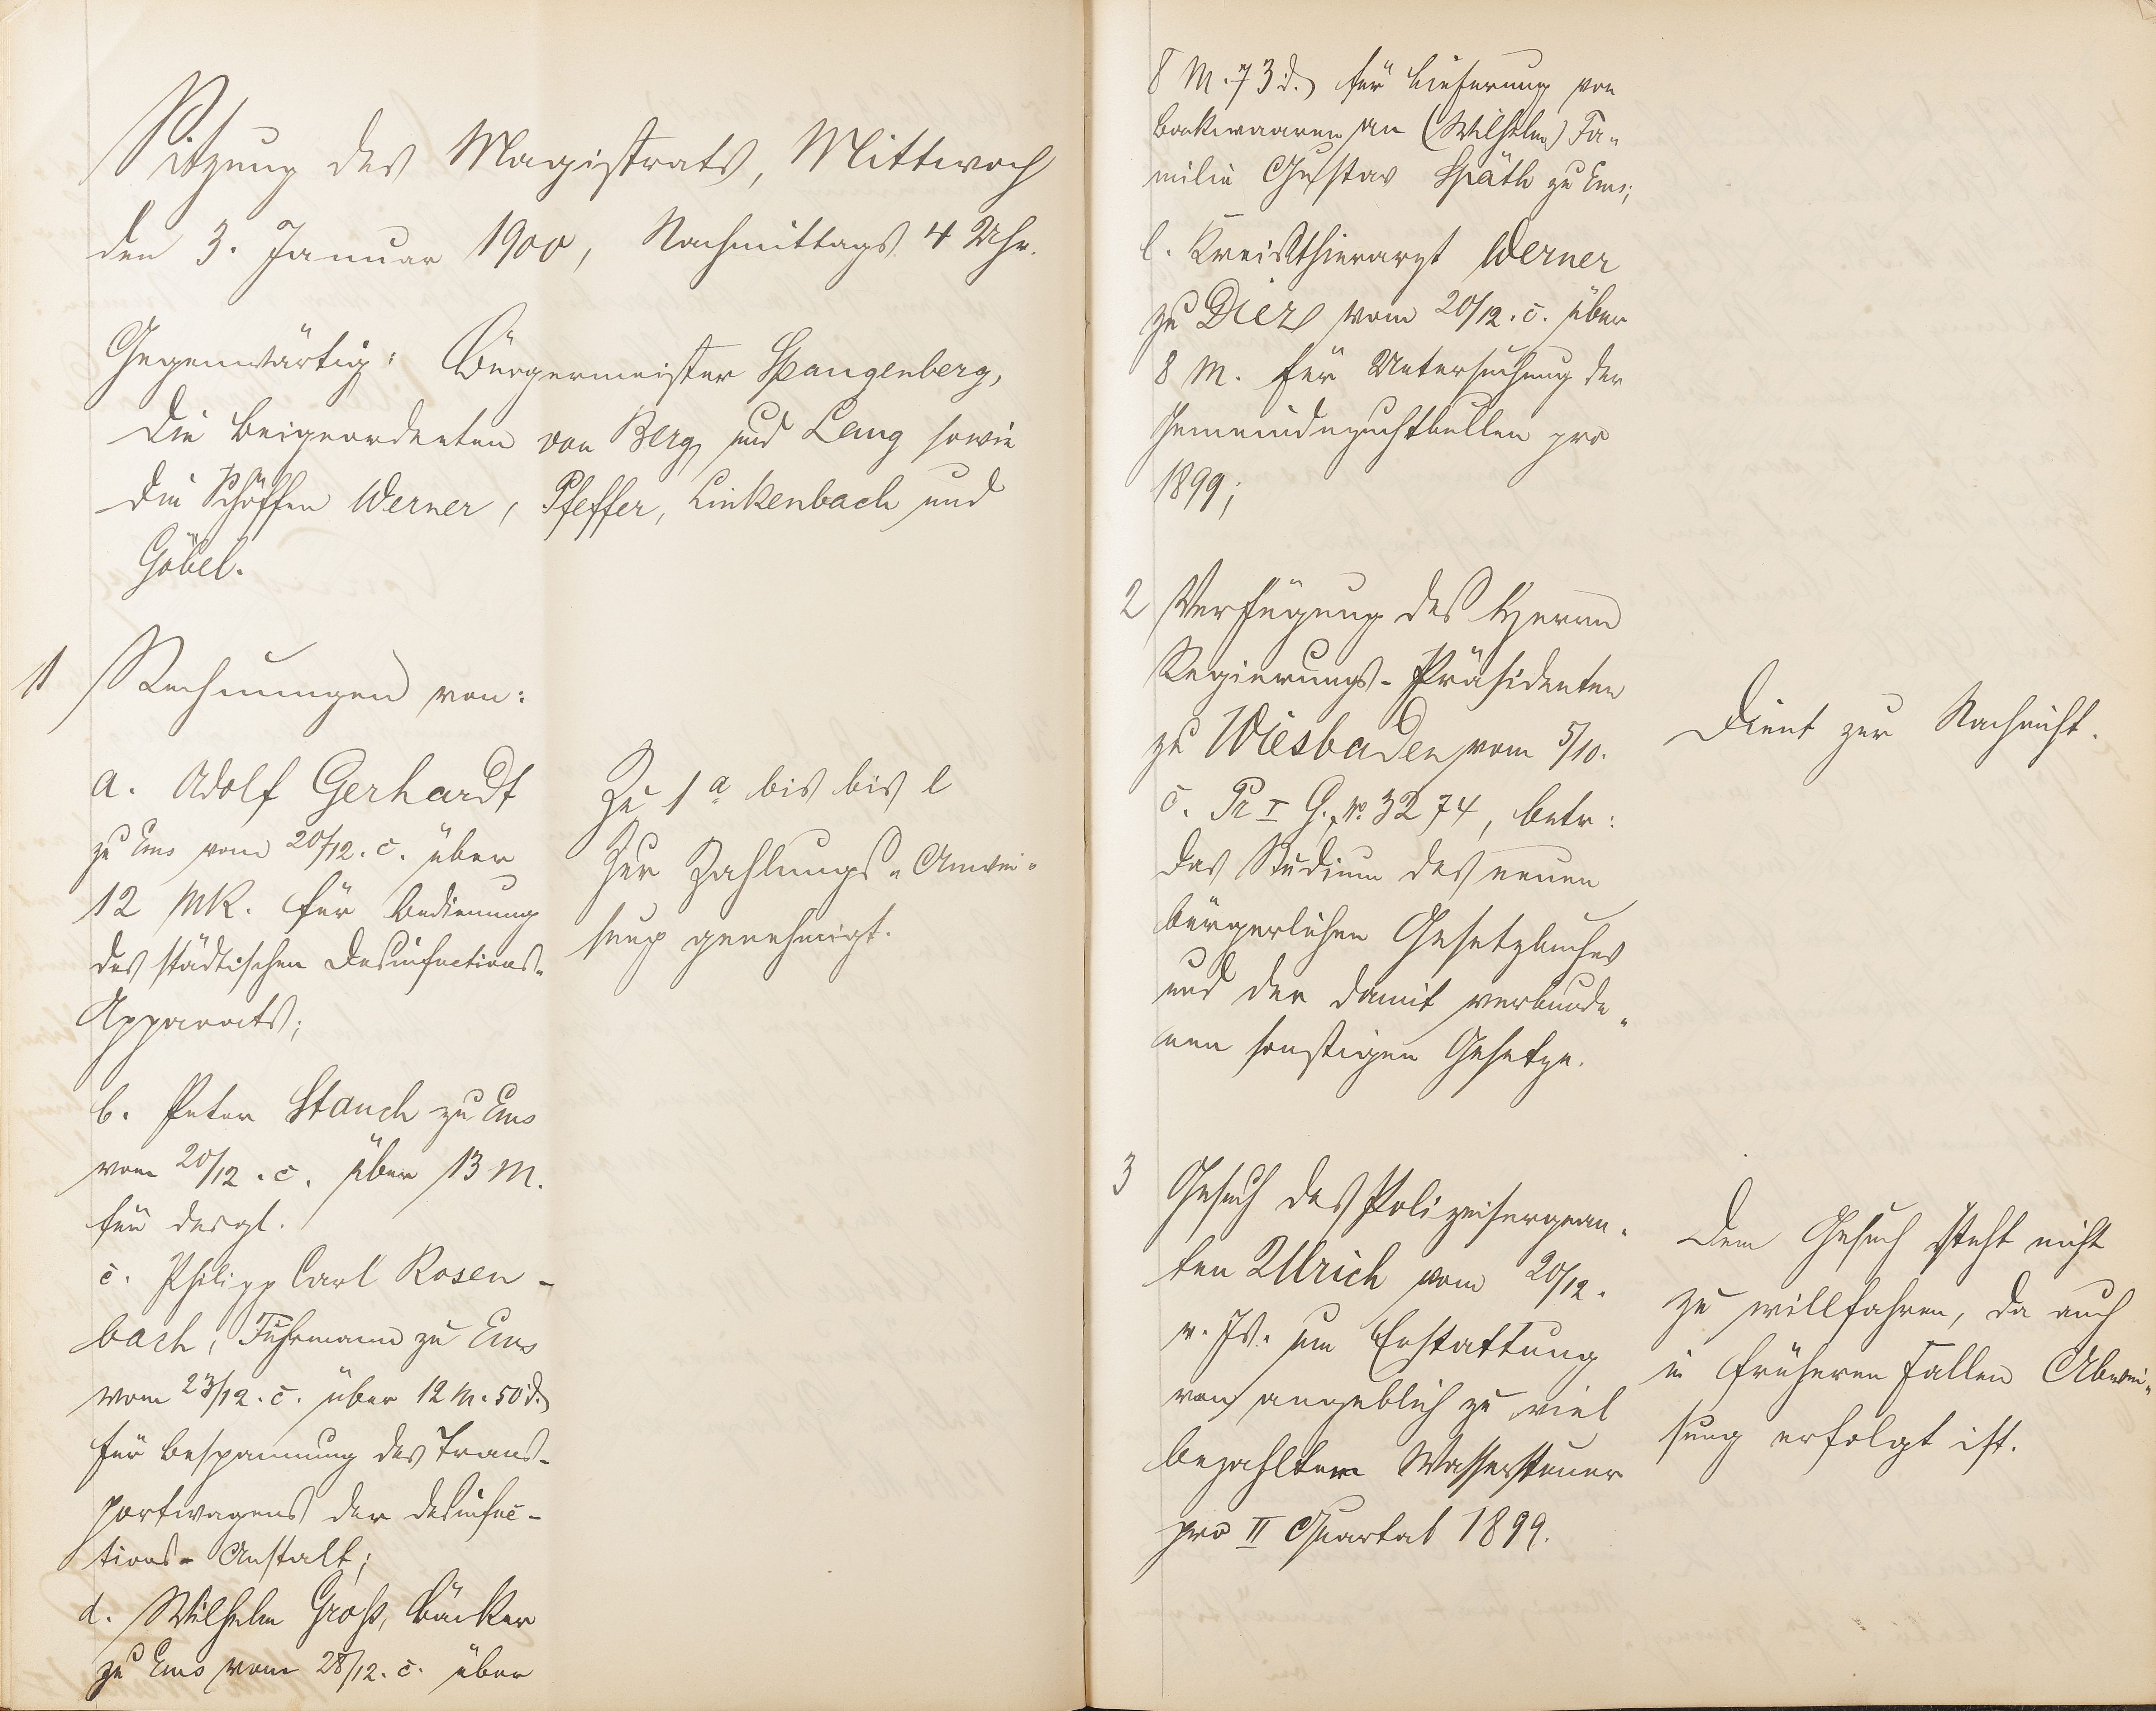 Sitzung des Magistrats, Mittwoch
den 3. Januar 1900, Nachmittags 4 Uhr.
Gegenwärtig: Bürgermeister Spangenberg,
die Beigeordneten von Berg und Lang sowie
die Schöffen Werner, Pfeffer, Linkenbach und
Göbel.
1 Rechnungen von:
a. Adolf Gerhardt
zu Ems vom 20/12. c. über
12 Mk. für Bedienung
des städtischen Desinfections-
Apparats;
b. Peter Stauch zu Ems
vom 20/12. c. über 13 M.
für dergl.
c. Philipp Carl Rosen-
bach, Fuhrmann zu Ems
vom 23/12. c. über 12 M. 50 d.
für Bespannung des Trans-
portwagens der Desinfec-
tions-Anstalt;
d. Wilhelm Groß, Bäcker
zu Ems vom 28/12. c. über
Zu 1 a bis bis l
Zur Zahlungs-Anwei-
sung genehmigt.
8 M. 73 d. für Lieferung von
Backwaaren an (Wilhelm) Fa-
milie Gustav Späth zu Ems;
l. Kreisthierarzt Werner
zu Diez vom 20/12. c. über
8 M. für Untersuchung der
Gemeindezuchtbullen pro
1899;
2 Verfügung des Herrn
Regierungs-Präsidenten
zu Wiesbaden vom 5/10.
c. Pr I G. No 3274, betr:
das Studium des neuen
bürgerlichen Gesetzbuches
und der damit verbunde-
nen sonstigen Gesetze.
Dient zur Nachricht.
3 Gesuch des Polizeisergean-
ten Ullrich vom 20/12.
v. Js. um Erstattung
von angeblich zu viel
bezahltem Wassersteuer
pro II Quartal 1899.
Dem Gesuch steht nicht
zu willfahren, da auch
in früheren Fallen Abwei-
sung erfolgt ist.